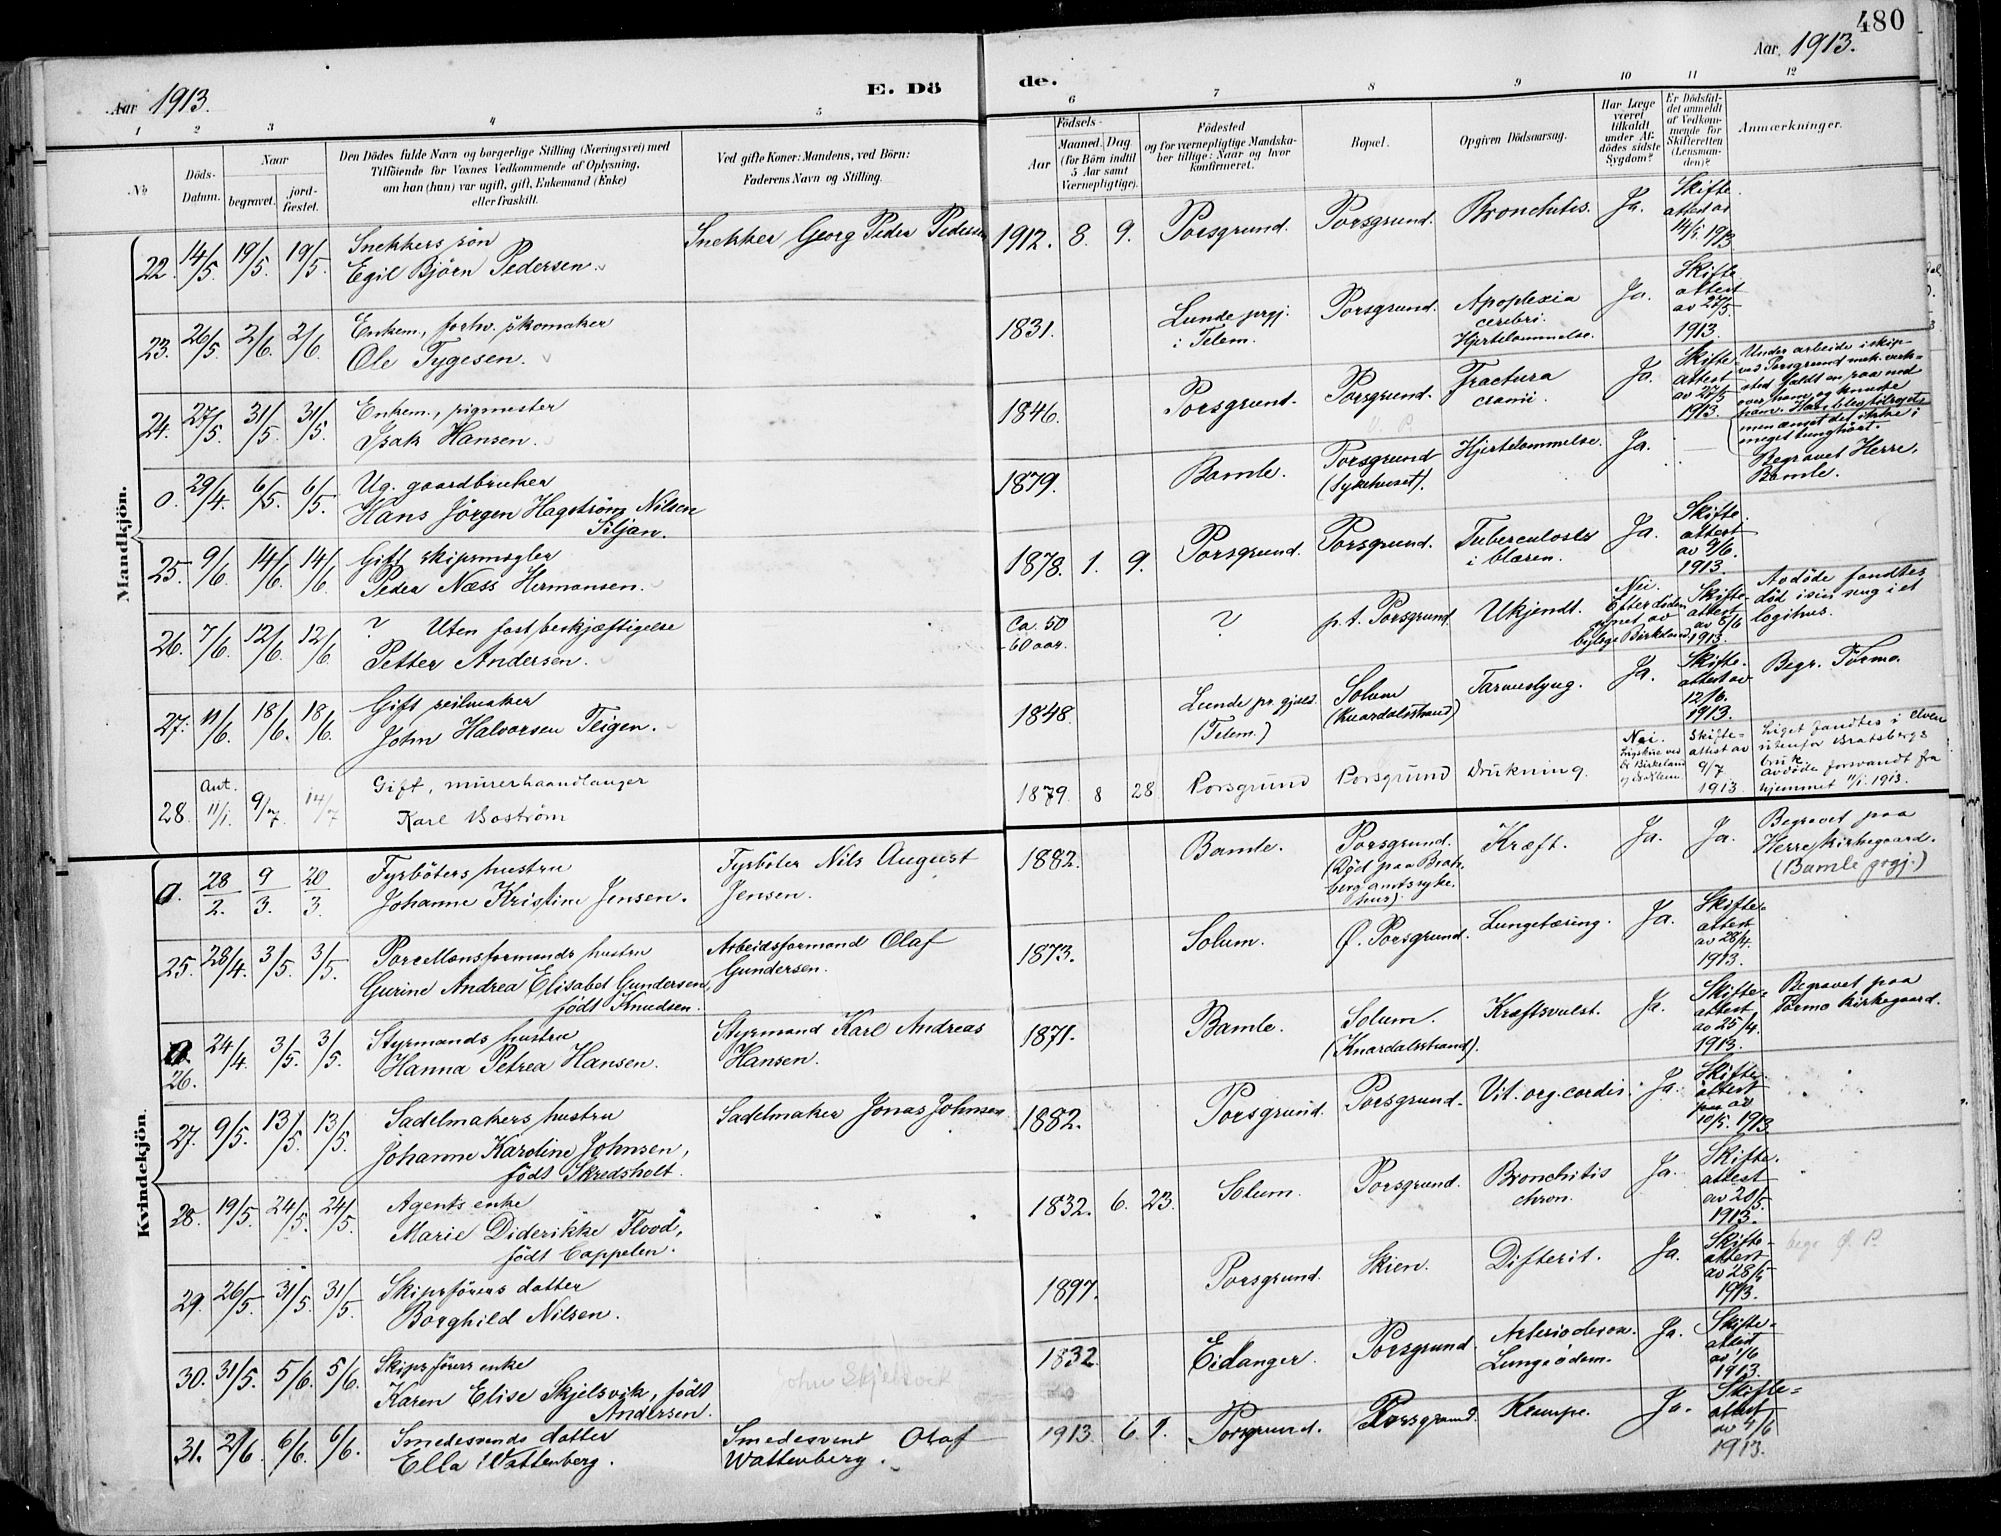 480
Aar 1913.
E. Dö
de.
Aar. 1913.
1 2 3 4 5 6 7 8 9 10 11 12
No
Döds-Datum.
Naar
begravet.
jord-fæstet.
Den Dödes fulde Navn og borgerlige Stilling (Næringsvei) med
Tilföiende for Voxnes Vedkommende af Oplysning,
om han (hun) var ugift, gift, Enkemand (Enke)
eller fraskilt.
Ved gifte Koner: Mandens, ved Börn:
Faderens Navn og Stilling.
Födsels-
Aar
Maaned. Dag.
(for Börn indtil
5 Aar samt
Værnepligtige).
Födested
og for værnepligtige Mandska-
ber tillige: Naar og hvor
konfirmeret.
Bopæl.
Opgiven Dödsaarsag.
Har Læge
været
tilkaldt
under Af-
dödes sidste
Sygdom?
Er Dödsfal-
det anmeldt
af Vedkom-
mende for
Skifteretten
(Lensman-
den)?
Anmærkninger.
Mandkjön.
22. 14/5 19/5. 19/5. Snekkers sön
Egil Björn Pedersen.
Snekker Georg Peder Pedersen
1912. 8. 9. Porsgrund. Porsgrund. Bronchitis. Ja. Skifte-
attest av
14/5. 1913
23. 26/5 2/6. 2/6. Enkem., forhv. skomaker
Ole Tygesen.
1831. Lunde prgj.
i Telem. Porsgrund. Apoplexia
cerebri.
Hjertelammelse. Ja. Skifte
attest
av 27/5
1913.
24. 27/5. 31/5. 31/5. Enkem., rigmester
Isak Hansen.
1846. Porsgrund. Porsgrund. Fractura
cranii. Ja. Skifte-
attest
av 27/5
1913.
Under arbeide i skip
ved Porsgrund mek. verk-
sted faldt en raa ned
over ham, og knuste
ham. Han blev tilropt,
men ænset det ikke i
meget tunghört.
0. 29/4. 6/5. 6/5. Ug. gaardbruker
Hans Jörgen Hagström Nilsen
Siljan.
1879. Bamle. Porsgrund
(Sykehuset). Hjertelammelse. Ja.
Begravet Herre,
Bamle.
25. 9/6. 14/6. 14/6. Gift skipsmegler
Peder Næss Hermansen.
1878. 1. 9. Porsgrund. Porsgrund. Tuberculosis
i blæren. Ja. Skifte-
attest
av 9/6.
1913
26. 7/6. 12/6. 12/6. ? Uten fast beskjæftigelse
Petter Andersen.
Ca. 50
-60 aar. ? p.t. Porsgrund Ukjendt. Nei.
Efter döden
synet av
bylæge Birkeland. Skifte-
attest
av 5/6
1913.
Avdöde fandtes
död i sin seng i et
logihus.
27. 11/6. 18/6. 18/6. Gift seilmaker
John Halvorsen Teigen.
1848. Lunde pr.gjeld.
(Telem.) Solum
(Knardalsstrand) Tarmslyng. Ja. Skifte-
attest av
12/6.
1913.
Begr. Tormo.
28. Ant.
11/1. 9/7. 14/7 Gift, murerhaandlanger
Karl Boström
1879. 8 28 Porsgrund Porsgrund Drukning. Nei.
Skifte-
attest av
9/7
1913.
Liget fandtes i elven
utenfor Bratsbergs
bruk
Avdöde forsvandt fra
hjemmet 11/1. 1913.
Kvindekjön.
0. 28/2. 9/3. 20/3 Fyrböters hustru
Johanne Kristine Jensen.
Fyrböter Nils August
Jensen.
1882. Bamle. Porsgrund.
(Död paa Brats-
berg amtssyke-
hus). Kræft. Ja. Ja.
Begravet paa
Herre kirkegaard.
(Bamle prgj.)
25. 28/4. 3/5. 3/5. Porcellænsformands hustru
Gurine Andrea Elisabet Gundersen,
födt Knudsen.
Arbeidsformand Olaf
Gundersen.
1873. Solum. Ø. Porsgrund. Lungetæring. Ja. Skifte-
attest
av 28/4.
1913.
26. 24/4. 3/5. 3/5. Styrmands hustru
Hanna Petrea Hansen.
Styrmand Karl Andreas
Hansen.
1871. Bamle. Solum.
(Knardalsstrand). Kræftsvulst. Ja. Skifte-
attest
av 25/4.
1913.
Begravet paa
Tormo kirkegaard.
27. 9/5. 13/5. 13/5. Sadelmakers hustru
Johanne Karoline Johnsen,
födt Skredsholt.
Sadelmaker Jonas Johnsen
1882. Porsgrund. Porsgrund. Vit. org. cordis. Ja. Skifte-
attest
av
10/5. 1913
28. 19/5. 24/5. 24/5. Agents enke
Marie Diderikke Flood,
födt Cappelen.
1832. 6. 23. Solum. Porsgrund. Bronchitis
chron. Ja. Skifte-
attest
av 20/5.
1913.
29. 26/5. 31/5. 31/5. Skipsförers datter
Borghild Nilsen.
1897. Porsgrund. Skien. Difterit. Ja. Skifte-
attest
av 28/5
1913.
begr. Ø. P.
30. 31/5. 5/6. 5/6. Skipsförers enke
Karen Elise Skjelsvik, födt
Andersen.
John Skjelsvik
1832 Eidanger. Porsgrund. Lungeödem. Ja. Skifte-
attest
av 1/6
1913.
31. 2/6. 6/6. 6/6. Smedesvends datter
Ella Wattenberg.
Smedesvent Olaf
Wattenberg.
1913. 6 1. Porsgrund. Porsgrund. Krampe. Ja. Skifte-
attest
av 4/6
1913.